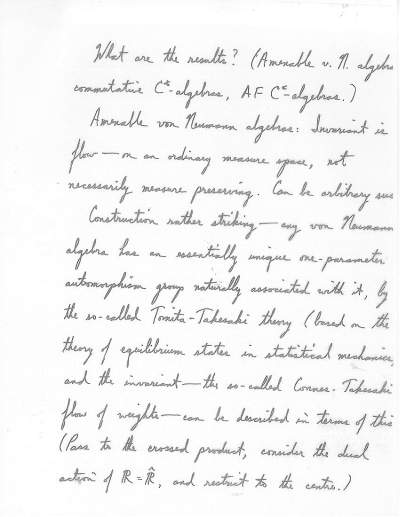 What are the results? (Amenable v. N. algebra
commutative C*-algebras, AF C*-algebras.)
Amenable von Neumann algebras: Invariant is
flow — on an ordinary measure space, not
necessarily measure preserving. Can be arbitrary suc
Construction rather striking — any von Neumann
algebra has an essentially unique one-parameter
automorphism group naturally associated with it, by
the so-called Tomita-Takesaki theory (based on the
theory of equilibrium states in statistical mechanics,
and the invariant — the so-called Connes-Takesaki
flow of weights — can be described in terms of this
(Pass to the crossed product, consider the dual
action of ℝ = ℝ̂, and restrict to the centre.)